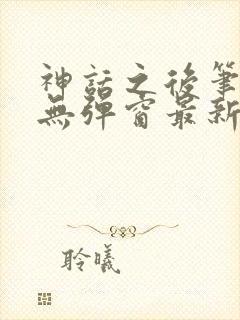 神話之後筆
無彈窗最新
聆曦